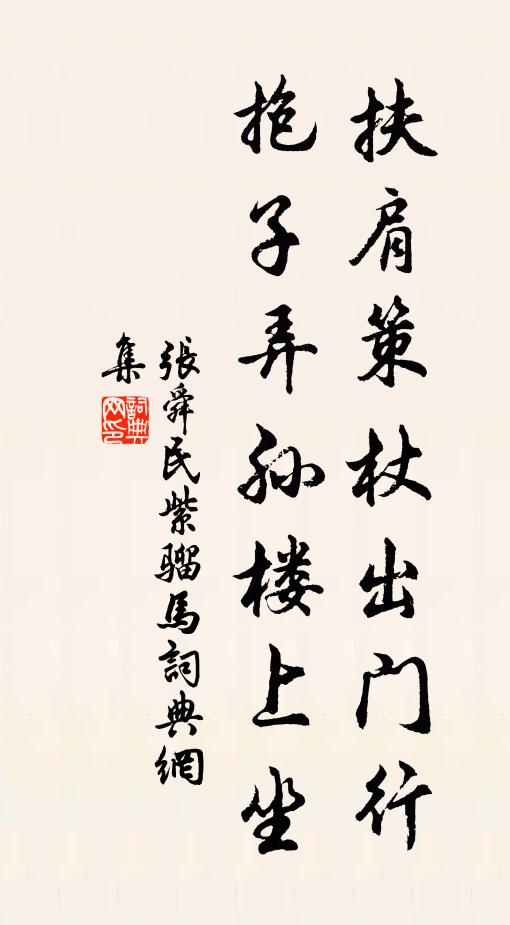 扶肩策杖出门行
抱子弄孙楼上坐
張舜民紫骝馬詞典網
集
詞典
网印